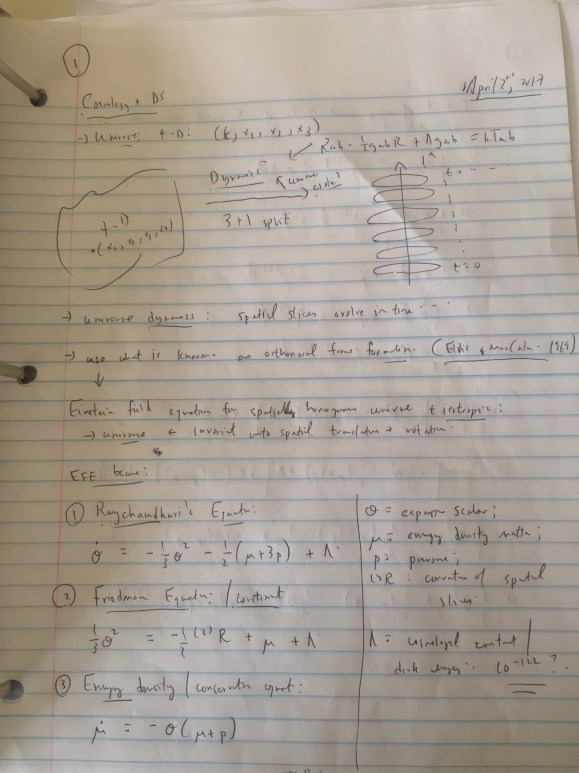 ①
April 2nd, 2017
Cosmology + DS
→ Universe: 4-D: (t, x₁, x₂, x₃)
Rab - ½gabR + Λgab = kTab
Dynamics
t = ...
4-D
3+1 split
t=0
→ universe dynamics: spatial slices evolve in time...
→ use what is known as orthonormal frame formalism. (Ellis & MacCallum - 1969)
Einstein field equations for spatially homogenous universe + isotropic:
→ universe invariant spatial translations + rotations.
EFE become:
① Raychaudhuri's Equation:
θ̇ = -⅓θ² - ½(μ+3p) + Λ.
② Friedmann Equation / constraint
⅓θ² = -½ ⁽³⁾R + μ + Λ
③ Energy density / conservation equation:
μ̇ = -θ(μ+p)
θ = expansion scalar;
μ = energy density matter;
p = pressure;
⁽³⁾R : curvature of spatial
slices
Λ = cosmological constant /
dark energy: 10⁻¹²² ?